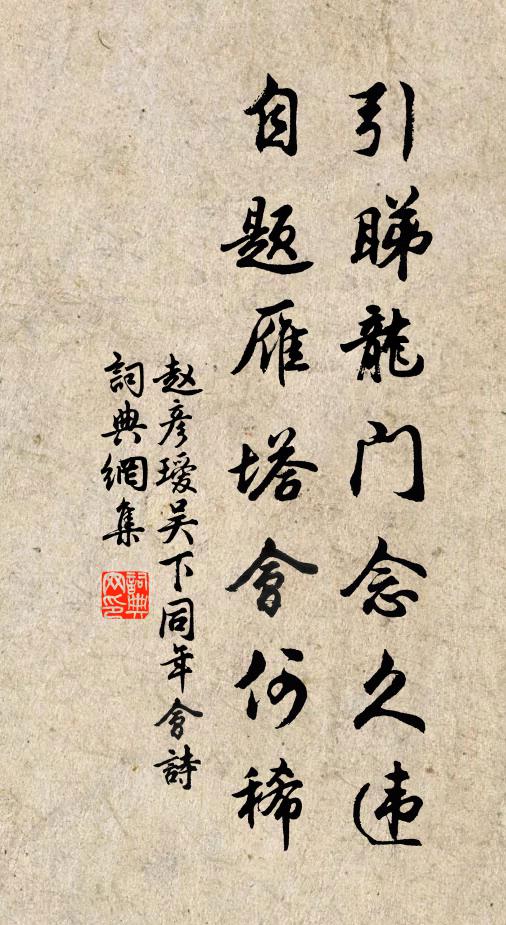 引睇龍门念久违
自题雁塔會何稀
赵彦瑷吴下同年會詩
詞典網集
詞典
网印